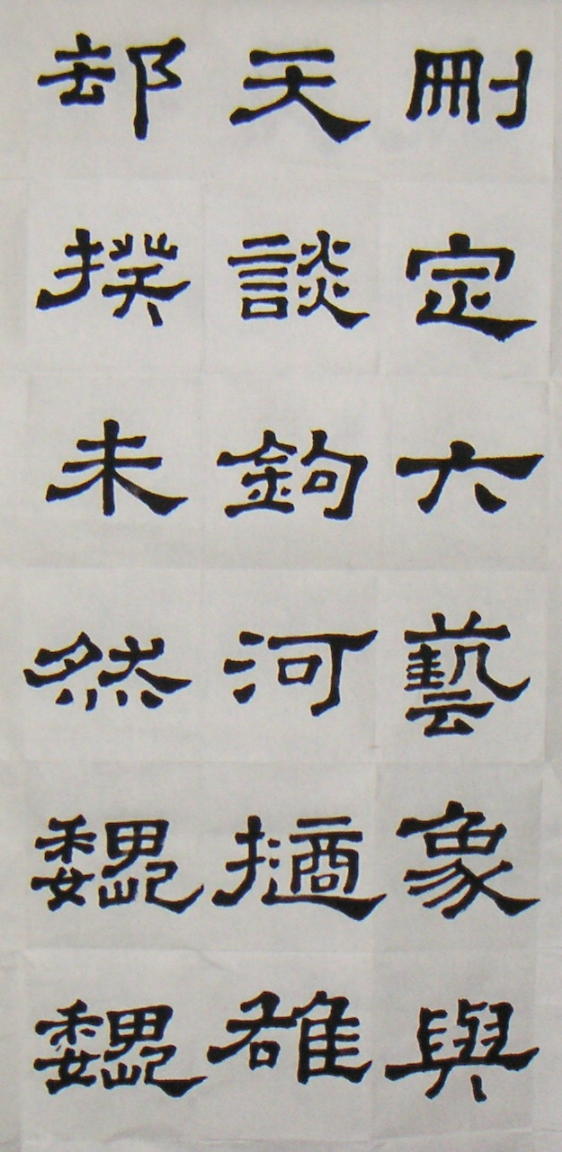 刪定六藝象與
天談鉤河擿雒
却揆未然巍巍